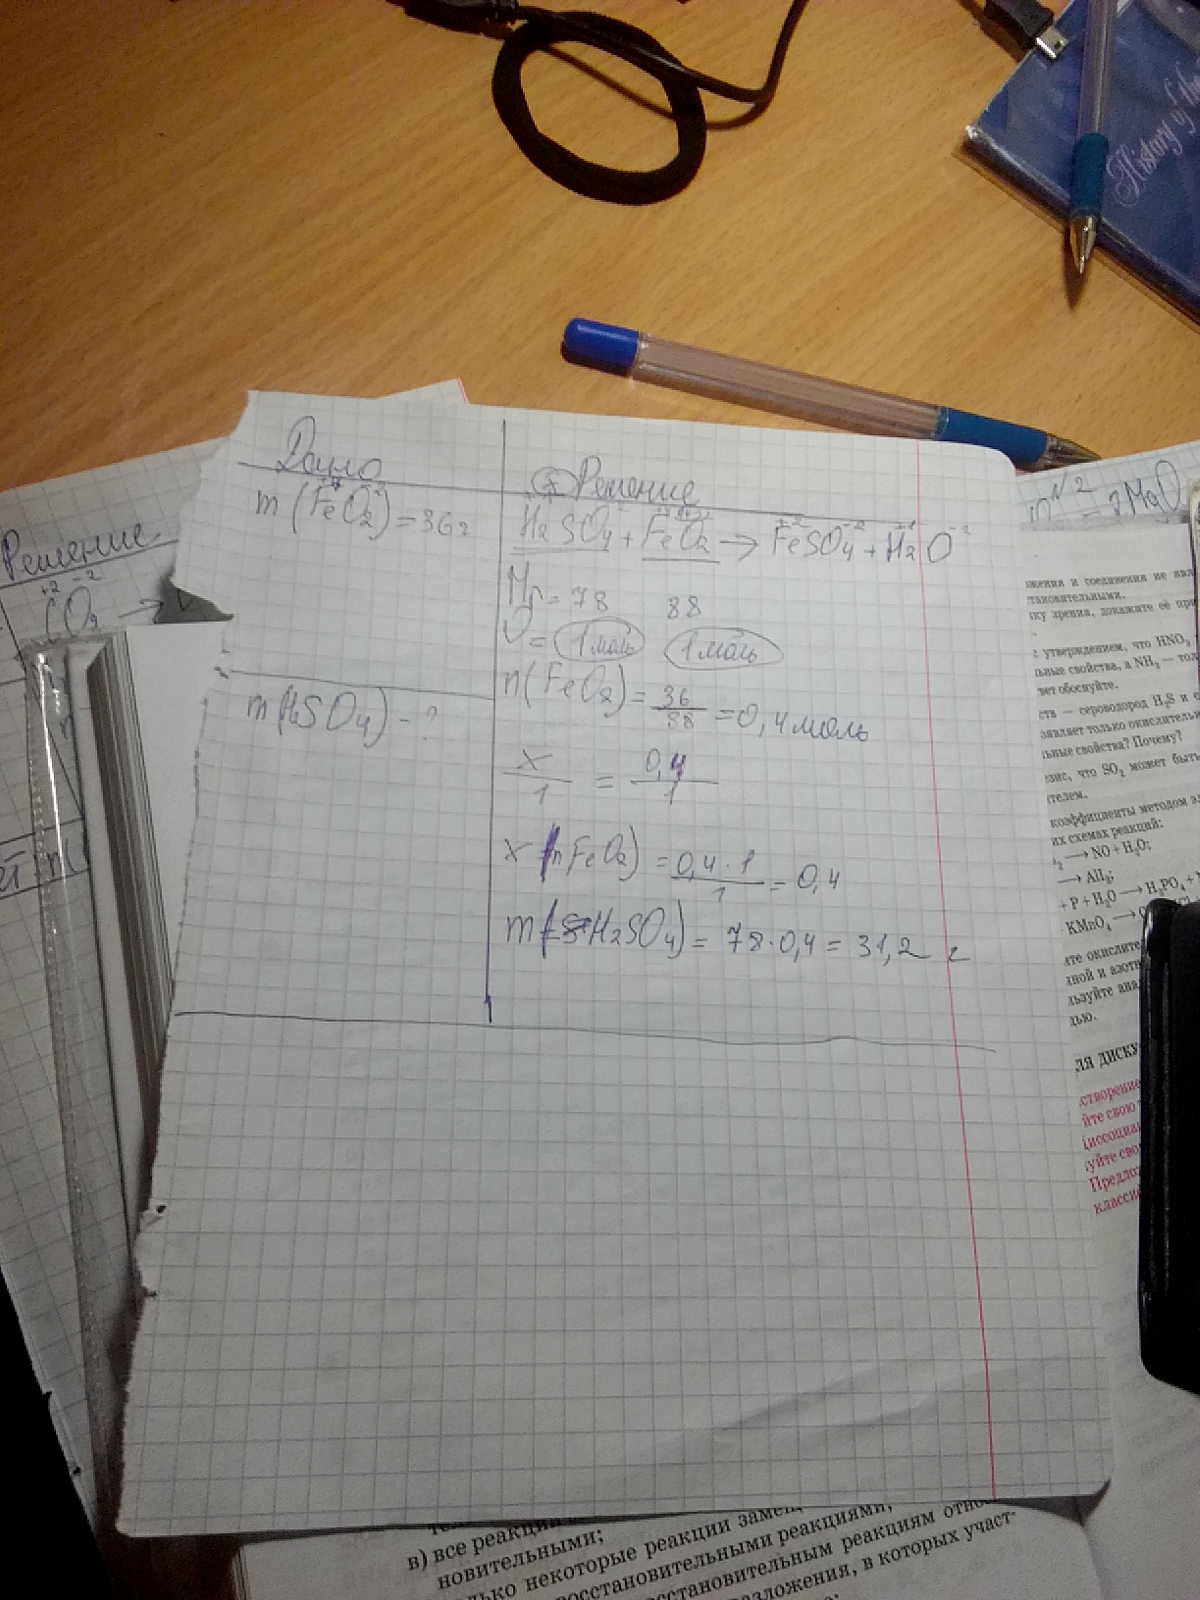 History of the
Дано
m (FeO₂) = 36г
m(H₂SO₄) - ?
Решение
H₂SO₄ + FeO₂ → FeSO₄ + H₂O
Mr = 78 88
ν = 1 моль 1 моль
n(FeO₂) = 36/88 = 0,4 моль
x/1 = 0,4/1
x (n FeO₂) = 0,4·1/1 = 0,4
m(H₂SO₄) = 78·0,4 = 31,2 г
Решение
+2 -2
№2
MgO
жения и соединения не
становительными.
ку зрения, докажите её
с утверждением, что HNO₃
льные свойства, а NH₃ —
вет обоснуйте.
ств — сероводород H₂S и
оявляет только окислительн
ьные свойства? Почему?
что SO₂ может быть
ителем.
коэффициенты методом
их схемах реакций:
→ NO + H₂O;
→ AlI₃;
+ P + H₂O → H₃PO₄ +
KMnO₄ →
ите окислите
ной и азотн
льзуйте ана
дью.
ЛЯ ДИСКУ
створение
йте свою
диссоциац
уйте сво
Предло
класси
в) все реакции
новительными;
лько некоторые реакции замещ
восстановительными реакциями;
сстановительным реакциям относ
азложения, в которых участ-